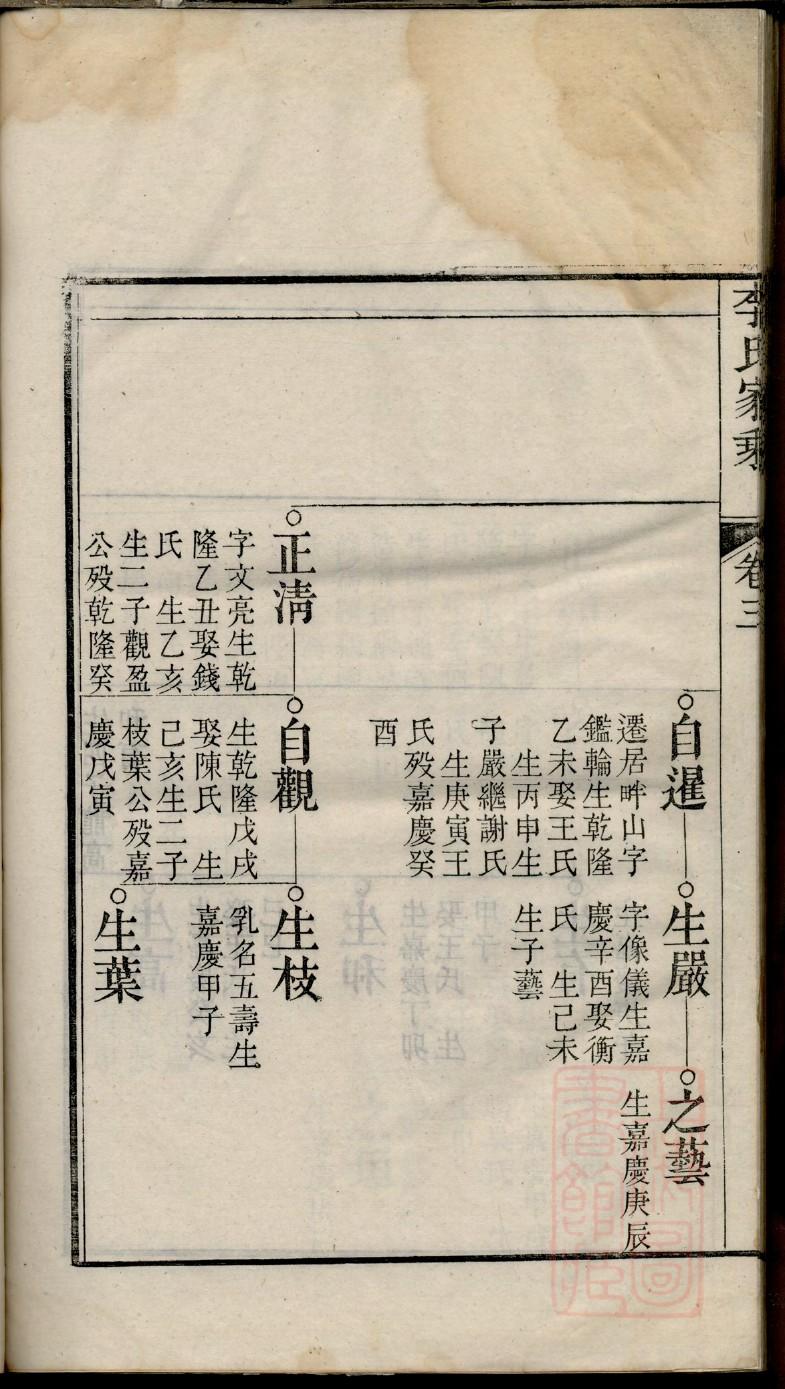 李氏家乘
卷三
自暹
遷居畔山字
鑑輪生乾隆
乙未娶王氏
生丙申生
子嚴繼謝氏
生庚寅王
氏殁嘉慶癸
酉
生嚴
字像儀生嘉
慶辛酉娶衡
氏　生己未
生子藝
之藝
生嘉慶庚辰
正淸
字文亮生乾
隆乙丑娶錢
氏　生乙亥
生二子觀盈
公殁乾隆癸
自觀
生乾隆戊戌
娶陳氏　生
己亥生二子
枝葉公殁嘉
慶戊寅
生枝
乳名五壽生
嘉慶甲子
生葉